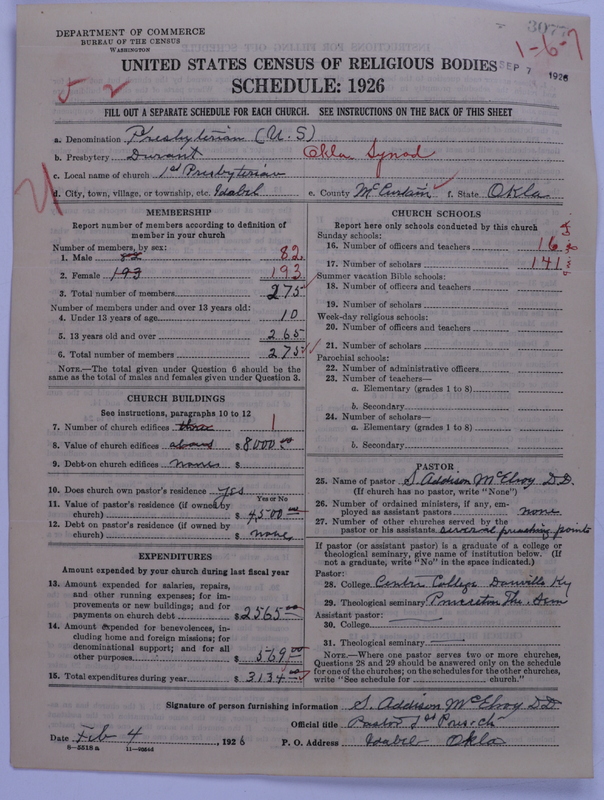 3077
1-6-7
SEP 7 1926
5 2
DEPARTMENT OF COMMERCE
BUREAU OF THE CENSUS
WASHINGTON
UNITED STATES CENSUS OF RELIGIOUS BODIES
SCHEDULE: 1926
FILL OUT A SEPARATE SCHEDULE FOR EACH CHURCH. SEE INSTRUCTIONS ON THE BACK OF THIS SHEET
a. Denomination Presbyterian (U.S)
b. Presbytery Durant Okla Synod
c. Local name of church 1st Presbyterian
d. City, town, village, or township, etc. Idabel e. County McCurtain f. State Okla
MEMBERSHIP
Report number of members according to definition of
member in your church
Number of members, by sex:
1. Male 82 82
2. Female 193 193
3. Total number of members 275
Number of members under and over 13 years old:
4. Under 13 years of age 10
5. 13 years old and over 265
6. Total number of members 275
NOTE.—The total given under Question 6 should be the
same as the total of males and females given under Question 3.
CHURCH BUILDINGS
See instructions, paragraphs 10 to 12
7. Number of church edifices 1
8. Value of church edifices $ 8000.00
9. Debt on church edifices none $
10. Does church own pastor's residence yes
Yes or No
11. Value of pastor's residence (if owned by
church) $ 4500.00
12. Debt on pastor's residence (if owned by
church) $ none
EXPENDITURES
Amount expended by your church during last fiscal year
13. Amount expended for salaries, repairs,
and other running expenses; for im-
provements or new buildings; and for
payments on church debt $ 2565.00
14. Amount expended for benevolences, in-
cluding home and foreign missions; for
denominational support; and for all
other purposes $ 569.00
15. Total expenditures during year $ 3134.00
CHURCH SCHOOLS
Report here only schools conducted by this church
Sunday schools:
16. Number of officers and teachers 16
17. Number of scholars 141
Summer vacation Bible schools:
18. Number of officers and teachers
19. Number of scholars
Week-day religious schools:
20. Number of officers and teachers
21. Number of scholars
Parochial schools:
22. Number of administrative officers
23. Number of teachers—
a. Elementary (grades 1 to 8)
b. Secondary
24. Number of scholars—
a. Elementary (grades 1 to 8)
b. Secondary
PASTOR
25. Name of pastor S. Addison McElroy D.D.
(If church has no pastor, write "None")
26. Number of ordained ministers, if any, em-
ployed as assistant pastors none
27. Number of other churches served by the
pastor or his assistants several preaching points
If pastor (or assistant pastor) is a graduate of a college or
theological seminary, give name of institution below. (If
not a graduate, write "No" in the space indicated.)
Pastor:
28. College Centre College Danville Ky
29. Theological seminary Princeton The. Sem
Assistant pastor:
30. College
31. Theological seminary
NOTE.—Where one pastor serves two or more churches,
Questions 28 and 29 should be answered only on the schedule
for one of the churches; on the schedules for the other churches,
write "See schedule for church."
Signature of person furnishing information S. Addison McElroy DD
Official title Pastor 1st Pres. ch
Date Feb 4, 1926 P. O. Address Idabel Okla
8—5518 a